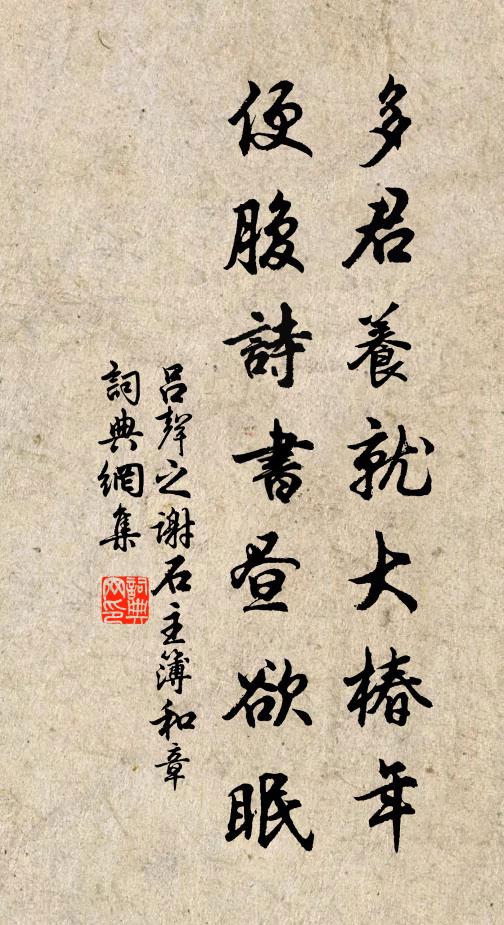 多君養就大椿年
便腹詩書昼欲眠
吕聲之谢石主簿和章
詞典網集
詞典網印